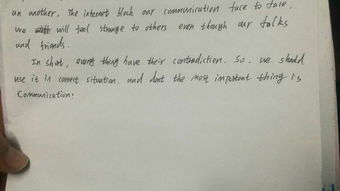 an another, The internet block our communication face to face.
we will feel strange to others even though our folks
and friends.
In shot, every thing have their contradiction. So. we should
use it in corect situation. and dont the most important thing is
Communication!